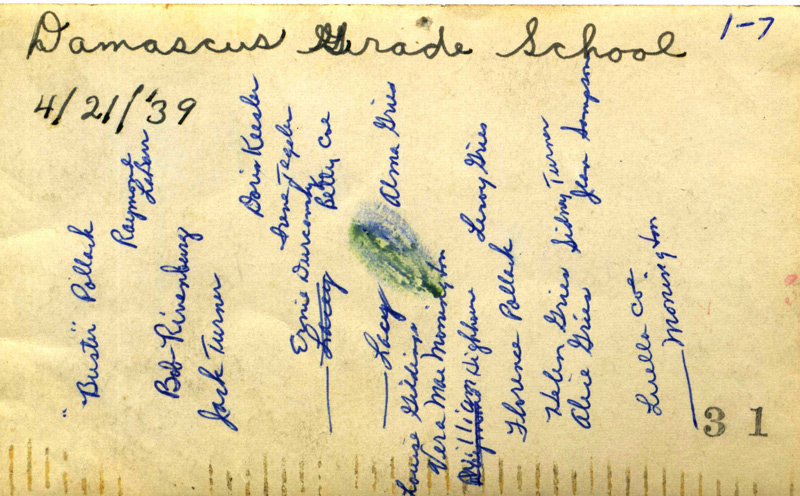 Damascus Grade School
1-7
4/21/'39
"Buster" Pollack
Raymond
LeBarr
Bob Rivenburg
Jack Turner
Doris Keesler
Irene Tegeler
Ernie Durcomb
Betty Coe
Lacey
Alma Gries
Lacy
Louise Giddings
Vera Mae Monington
William Highhouse
Leroy Gries
Florence Pollack
Helen Gries Sidney Turner
Alice Gries Jean Sampson
Luella Coe
Monington
31